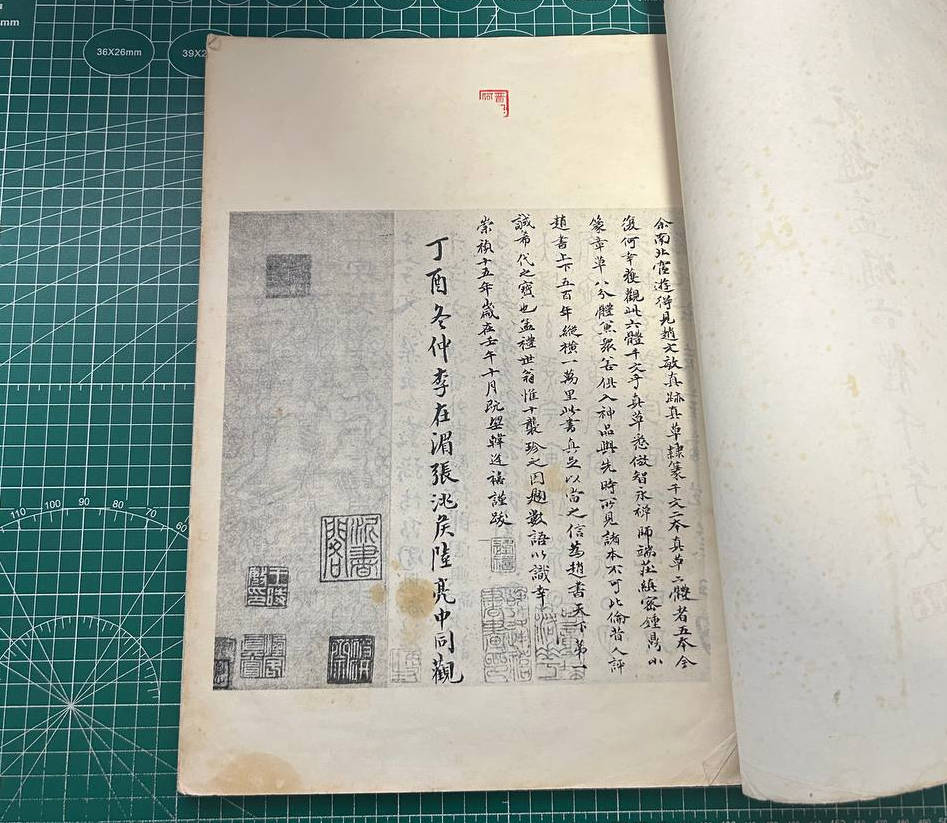 余南北宦遊得見趙文敏真跡真草隸篆千文二本真草二體者五本今
復何幸獲觀此六體千文乎真草悉倣智永禪師端莊縝密鍾鼎小
篆章草八分體兼眾善俱入神品與先時所見諸本不可比倫昔人評
趙書上下五百年縱橫一萬里此書真足以當之信為趙書天下第一
誠希代之寶也孟禮世翁惟十襲珍之因題數語以識幸
崇禎十五年歲在壬午十月既望韓逢禧謹跋
丁酉冬仲李在湄張洮侯陸亮中同觀
36X26mm
110
100
90
80
70
60
110
100
90
80
70
60